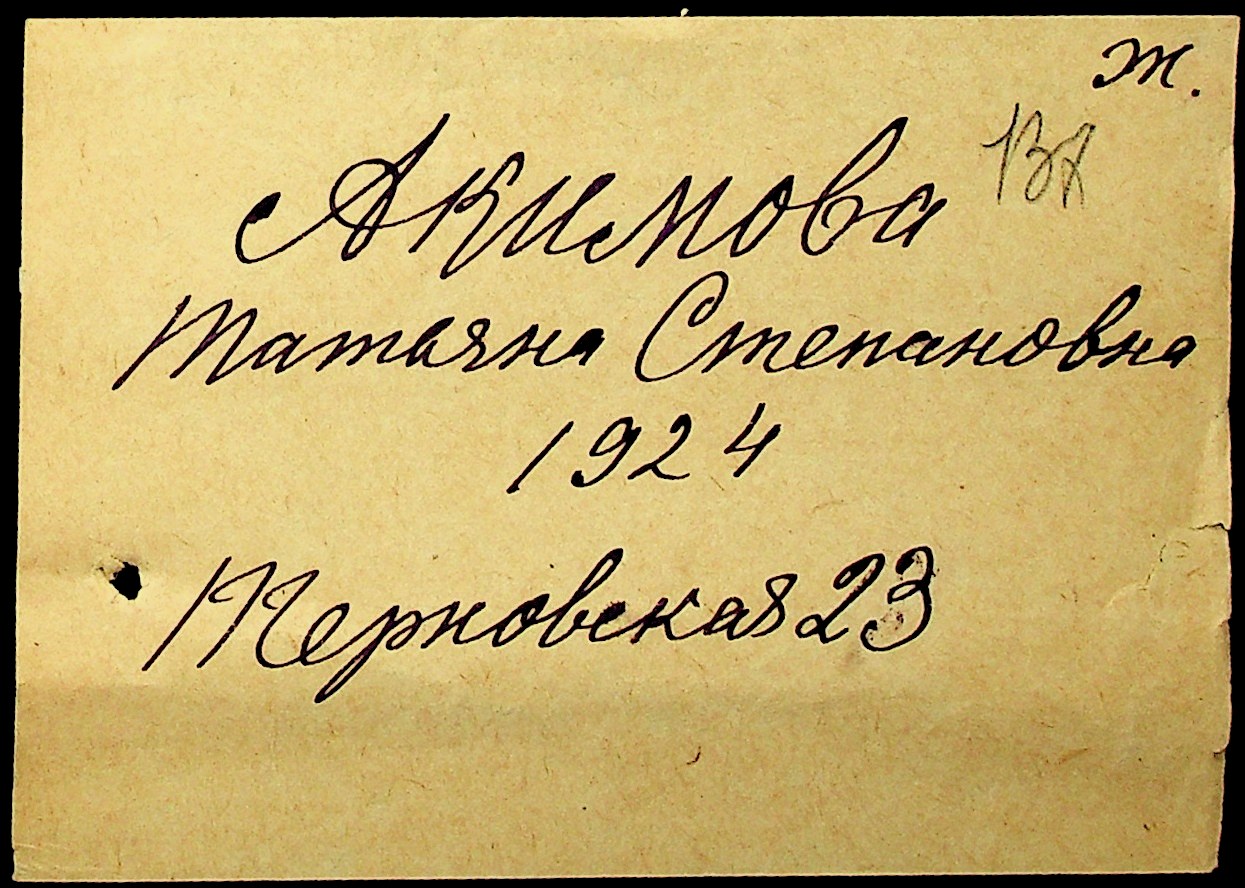 ж.
Акимова
Татьяна Степановна
1924
Терновская 23